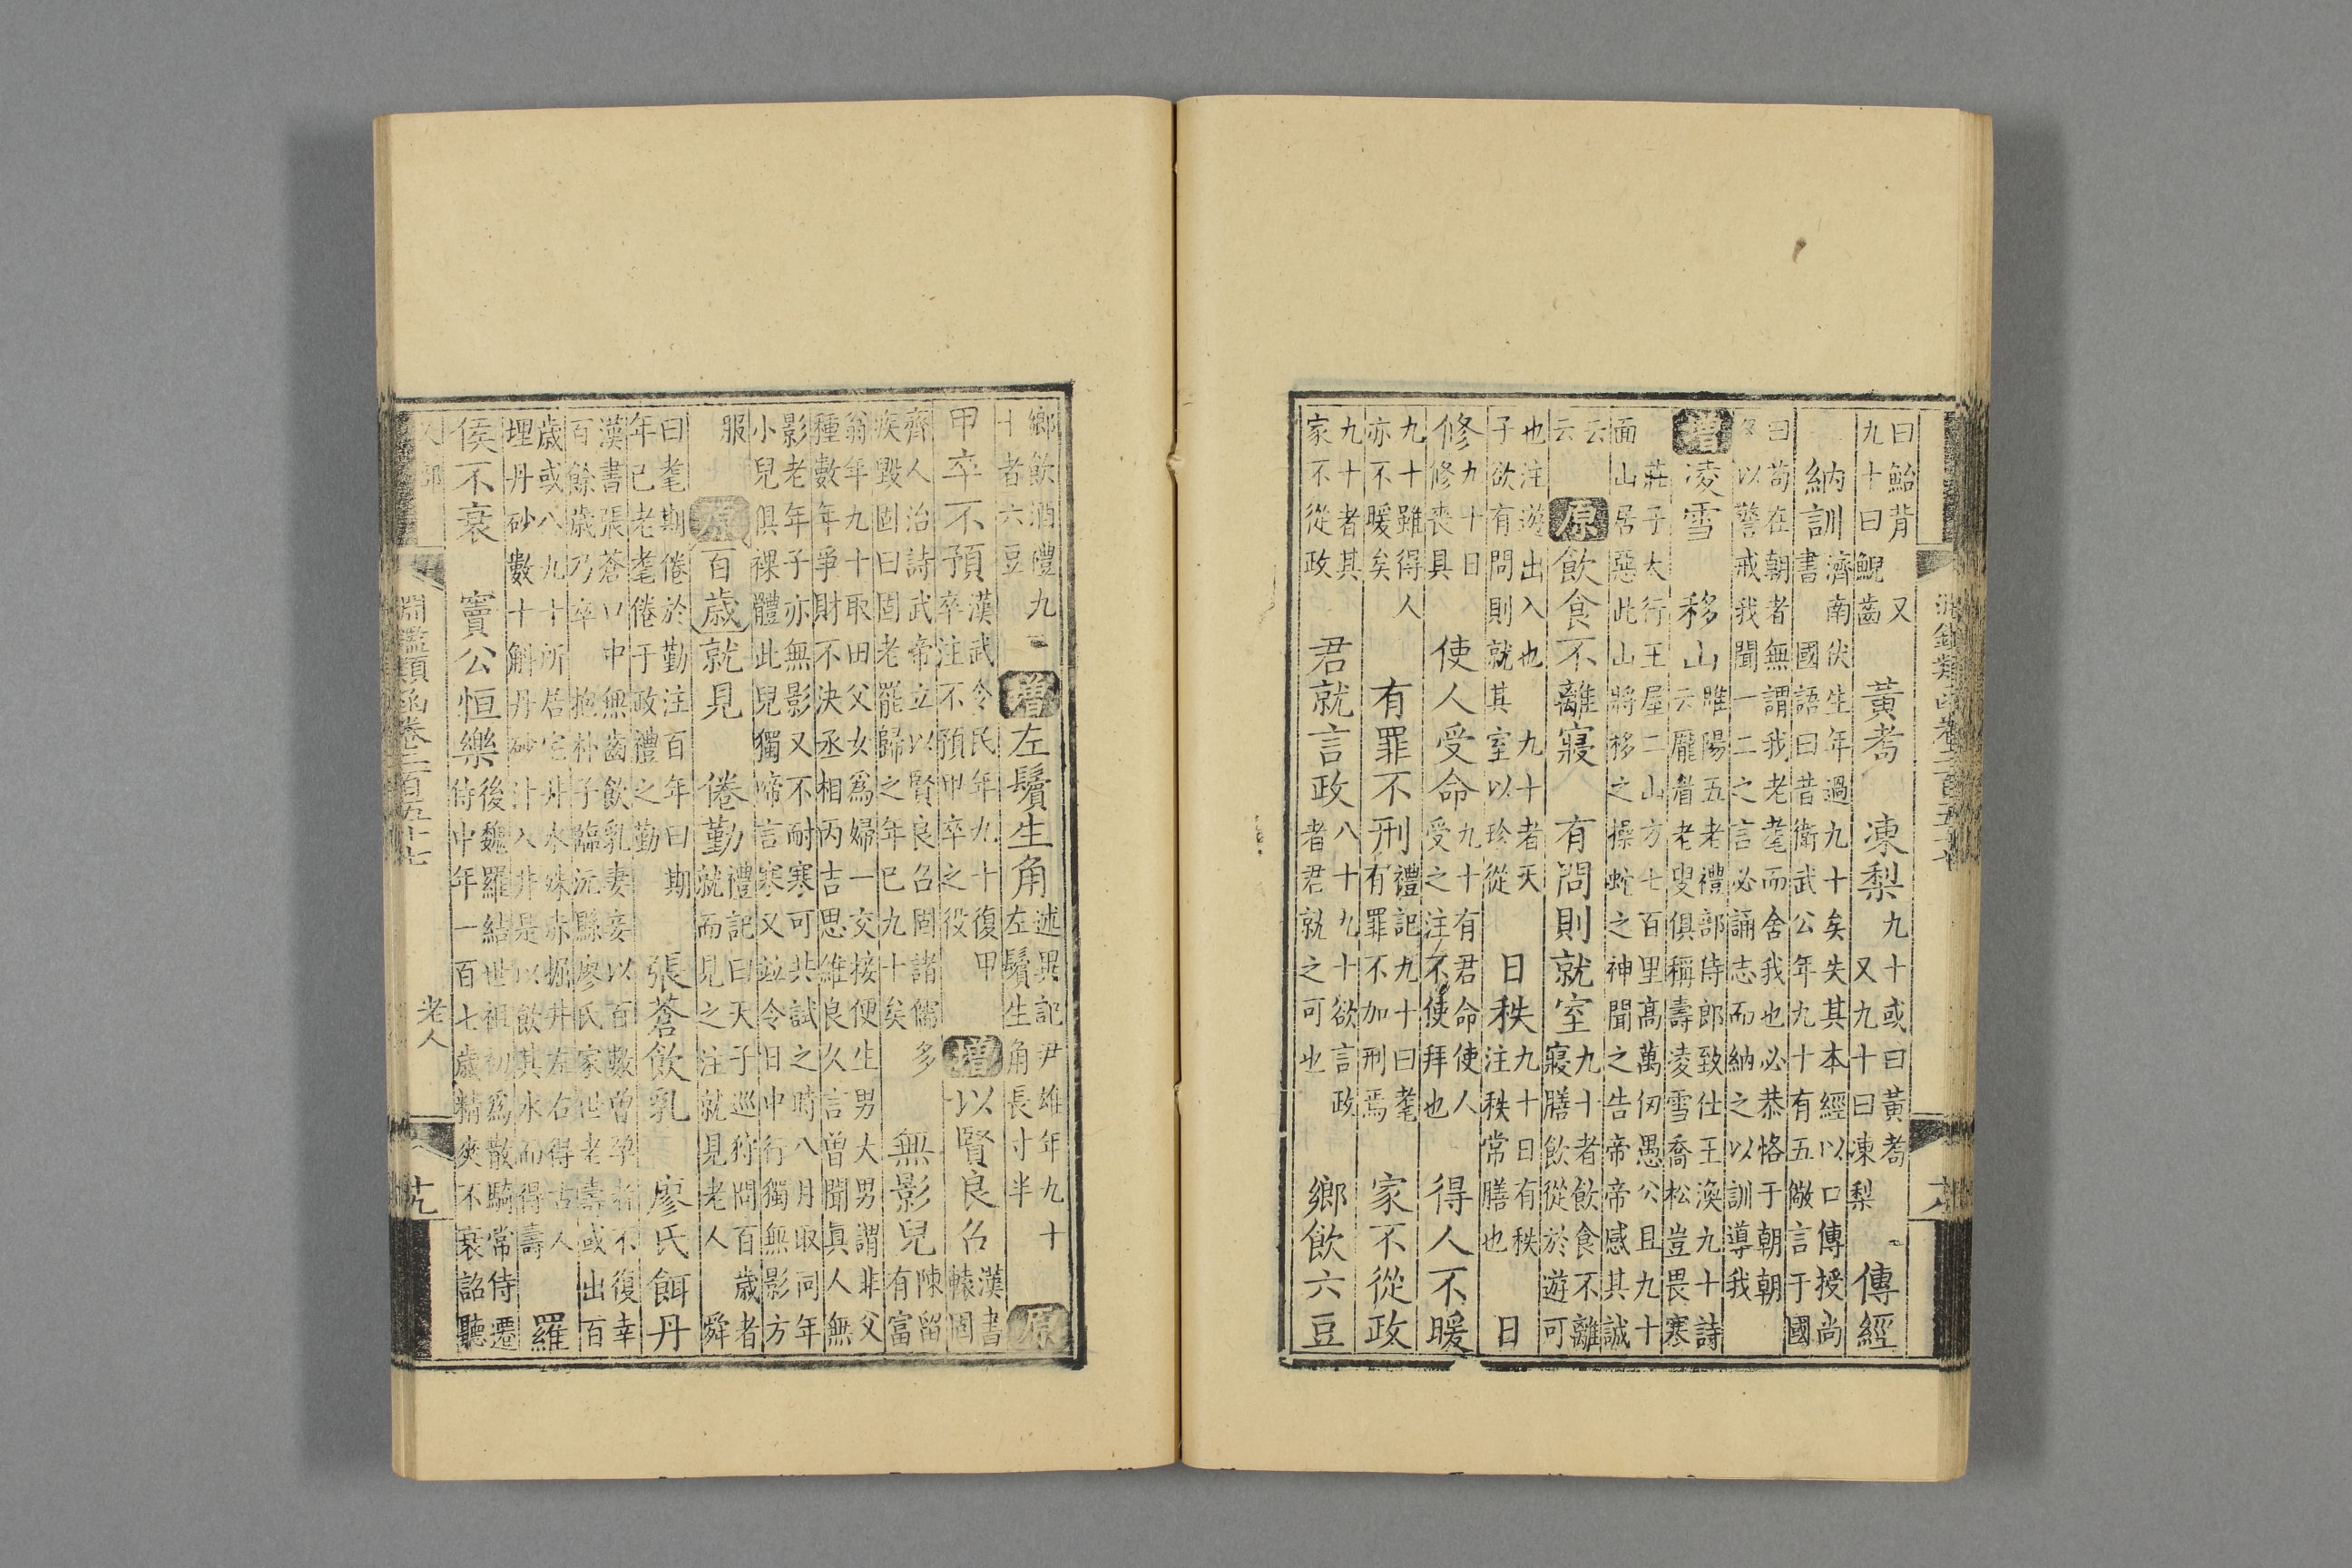 淵鑑類函卷二百五十七
曰鮐背　又
九十曰鯢齒
黃耇　凍梨
九十或曰黃耇
又九十曰凍梨
傳經
納訓
濟南伏生年過九十矣失其本經以口傳授尚
書　國語曰昔衛武公年九十有五儆言于國
曰苟在朝者無謂我老耄而舍我也必恭恪于朝朝
夕以警戒我聞一二之言必誦志而納之以訓導我
增　凌雪　移山
睢陽五老禮部侍郎致仕王渙九十詩
云龎眉老叟俱稱壽凌雪喬松豈畏寒
莊子太行王屋二山方七百里高萬仞愚公且九十
面山居惡此山將移之操蛇之神聞之告帝帝感其誠
云云
原　飲食不離寢　有問則就室
九十者飲食不離
寢膳飲從於遊可
也注遊出入也　九十者天
子欲有問則就其室以珍從
日秩
九十日有秩
注秩常膳也
日
修
九十日
修喪具
使人受命
九十有君命使人
受之注不使拜也
得人不暖
九十雖得人
亦不暖矣
有罪不刑
禮記九十曰耄
有罪不加刑焉
家不從政
九十者其
家不從政
君就言政
八十九十欲言政
者君就之可也
鄉飲六豆
鄉飲酒禮九
十者六豆
增　左鬢生角
述異記尹雄年九十
左鬢生角長寸半
原
甲卒不預
漢武令民年九十復甲
卒注不預甲卒之役
增　以賢良召
漢書
轅固
齊人治詩武帝立以賢良召固諸儒多
疾毀固曰固老罷歸之年已九十矣
無影兒
陳留
有富
翁年九十取田父女爲婦一交接便生男大男謂非父
種數年爭財不決丞相丙吉思維良久言曾聞眞人無
影老年子亦無影又不耐寒可共試之時八月取同年
小兒俱裸體此兒獨啼言寒又並令日中行獨無影方
服
原　百歲就見　倦勤
禮記曰天子巡狩問百歲者
就而見之注就見老人　舜
曰耄期倦於勤注百年曰期
年已老耄倦于政禮之勤
張蒼飲乳　廖氏餌丹
漢書張蒼口中無齒飲乳妻妾以百數曾孕者不復幸
百餘歲乃卒　抱朴子臨沅縣廖氏家世老壽或出百
歲或八九十所居宅井水殊赤掘井左右得古人
埋丹砂數十斛丹砂汁入井是以飲其水而得壽
羅
侯不衰　竇公恒樂
後魏羅結世祖初爲散騎常侍遷
侍中年一百七歲精爽不衰詔聽
淵鑑類函卷二百五十七　老人